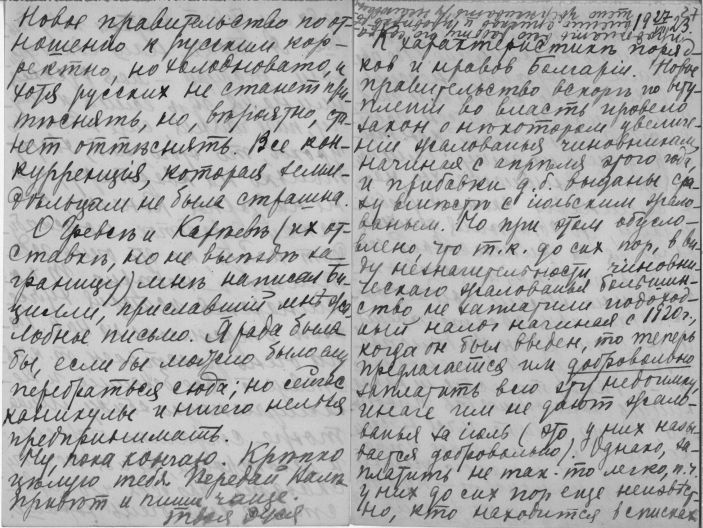 Новое правительство по от-
ношенію к русским кор-
ректно, но холодновато, и
хотя русских не станет при-
тѣснять, но, вѣроятно, ста-
нет оттѣснять. Все кон-
курренція, которая земле-
дѣльцам не была страшна.
О Гревсѣ и Карѣевѣ (их от-
ставкѣ, но не выѣздѣ за
границу) мнѣ написал Би-
цилли, приславший мнѣ
лобное письмо. Я рада была
бы, если бы можно было ещ
перебраться сюда; но сейчас
каникулы и ничего нельзя
предпринимать.
Ну, пока кончаю. Крѣпко
цѣлую тебя. Передай Кат
привѣт и пиши чаще.
твоя
1924
К характеристикѣ поряд-
ков и нравов Болгаріи. Новое
правительство вскорѣ по всту-
пленіи во власть провело
закон о нѣкотором увеличе-
ніи жалованья чиновникам,
начиная с апрѣля этого года,
и прибавки д.б. выданы сра-
зу вмѣстѣ с іюльским жало-
ваньем. Но при этом обусло-
влено, что т.к. до сих пор, в ви-
ду незначительности чиновни-
ческаго жалованья большин-
ство не заплатили подоход-
ный налог начиная с 1920 г.,
когда он был введен, то теперь
предлагается им добровольно
заплатить всю эту недоимку,
иначе им не дают жало-
ванья за іюль (это у них назы-
вается добровольно). Однако, за-
платить не так-то легко, п.ч.
у них до сих пор еще неизвѣст-
но, кто находится в списках